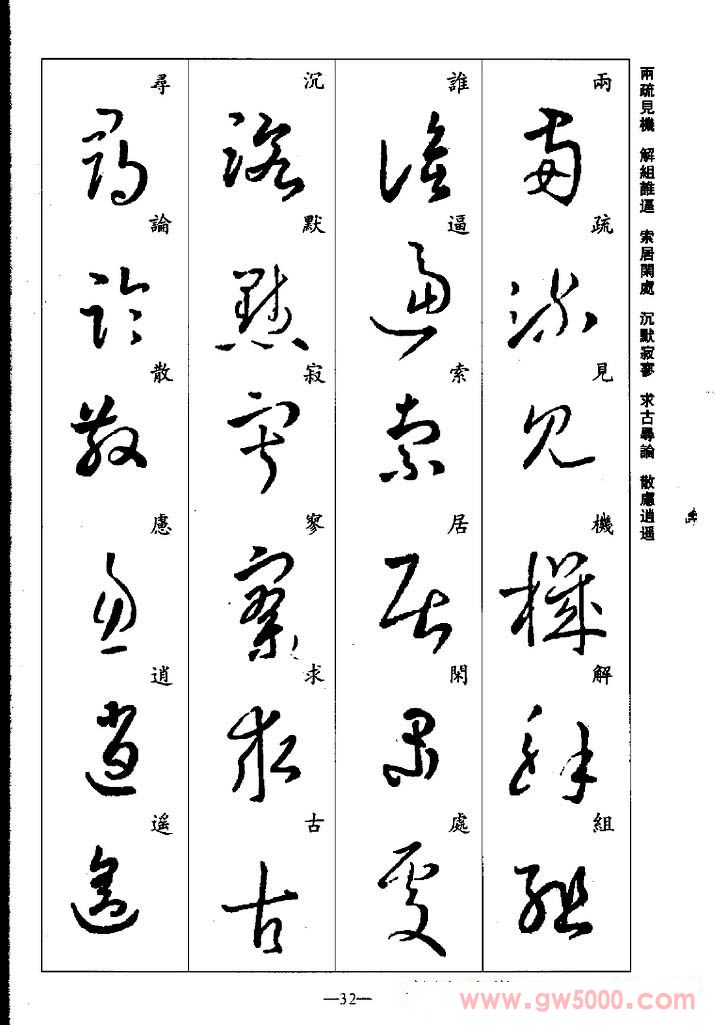 兩疏見機 解組誰逼 索居閑處 沉默寂寥 求古尋論 散慮逍遥
兩疏見機解組
誰逼索居閑處
沉默寂寥求古
尋論散慮逍遥
—32—
www.gw5000.com